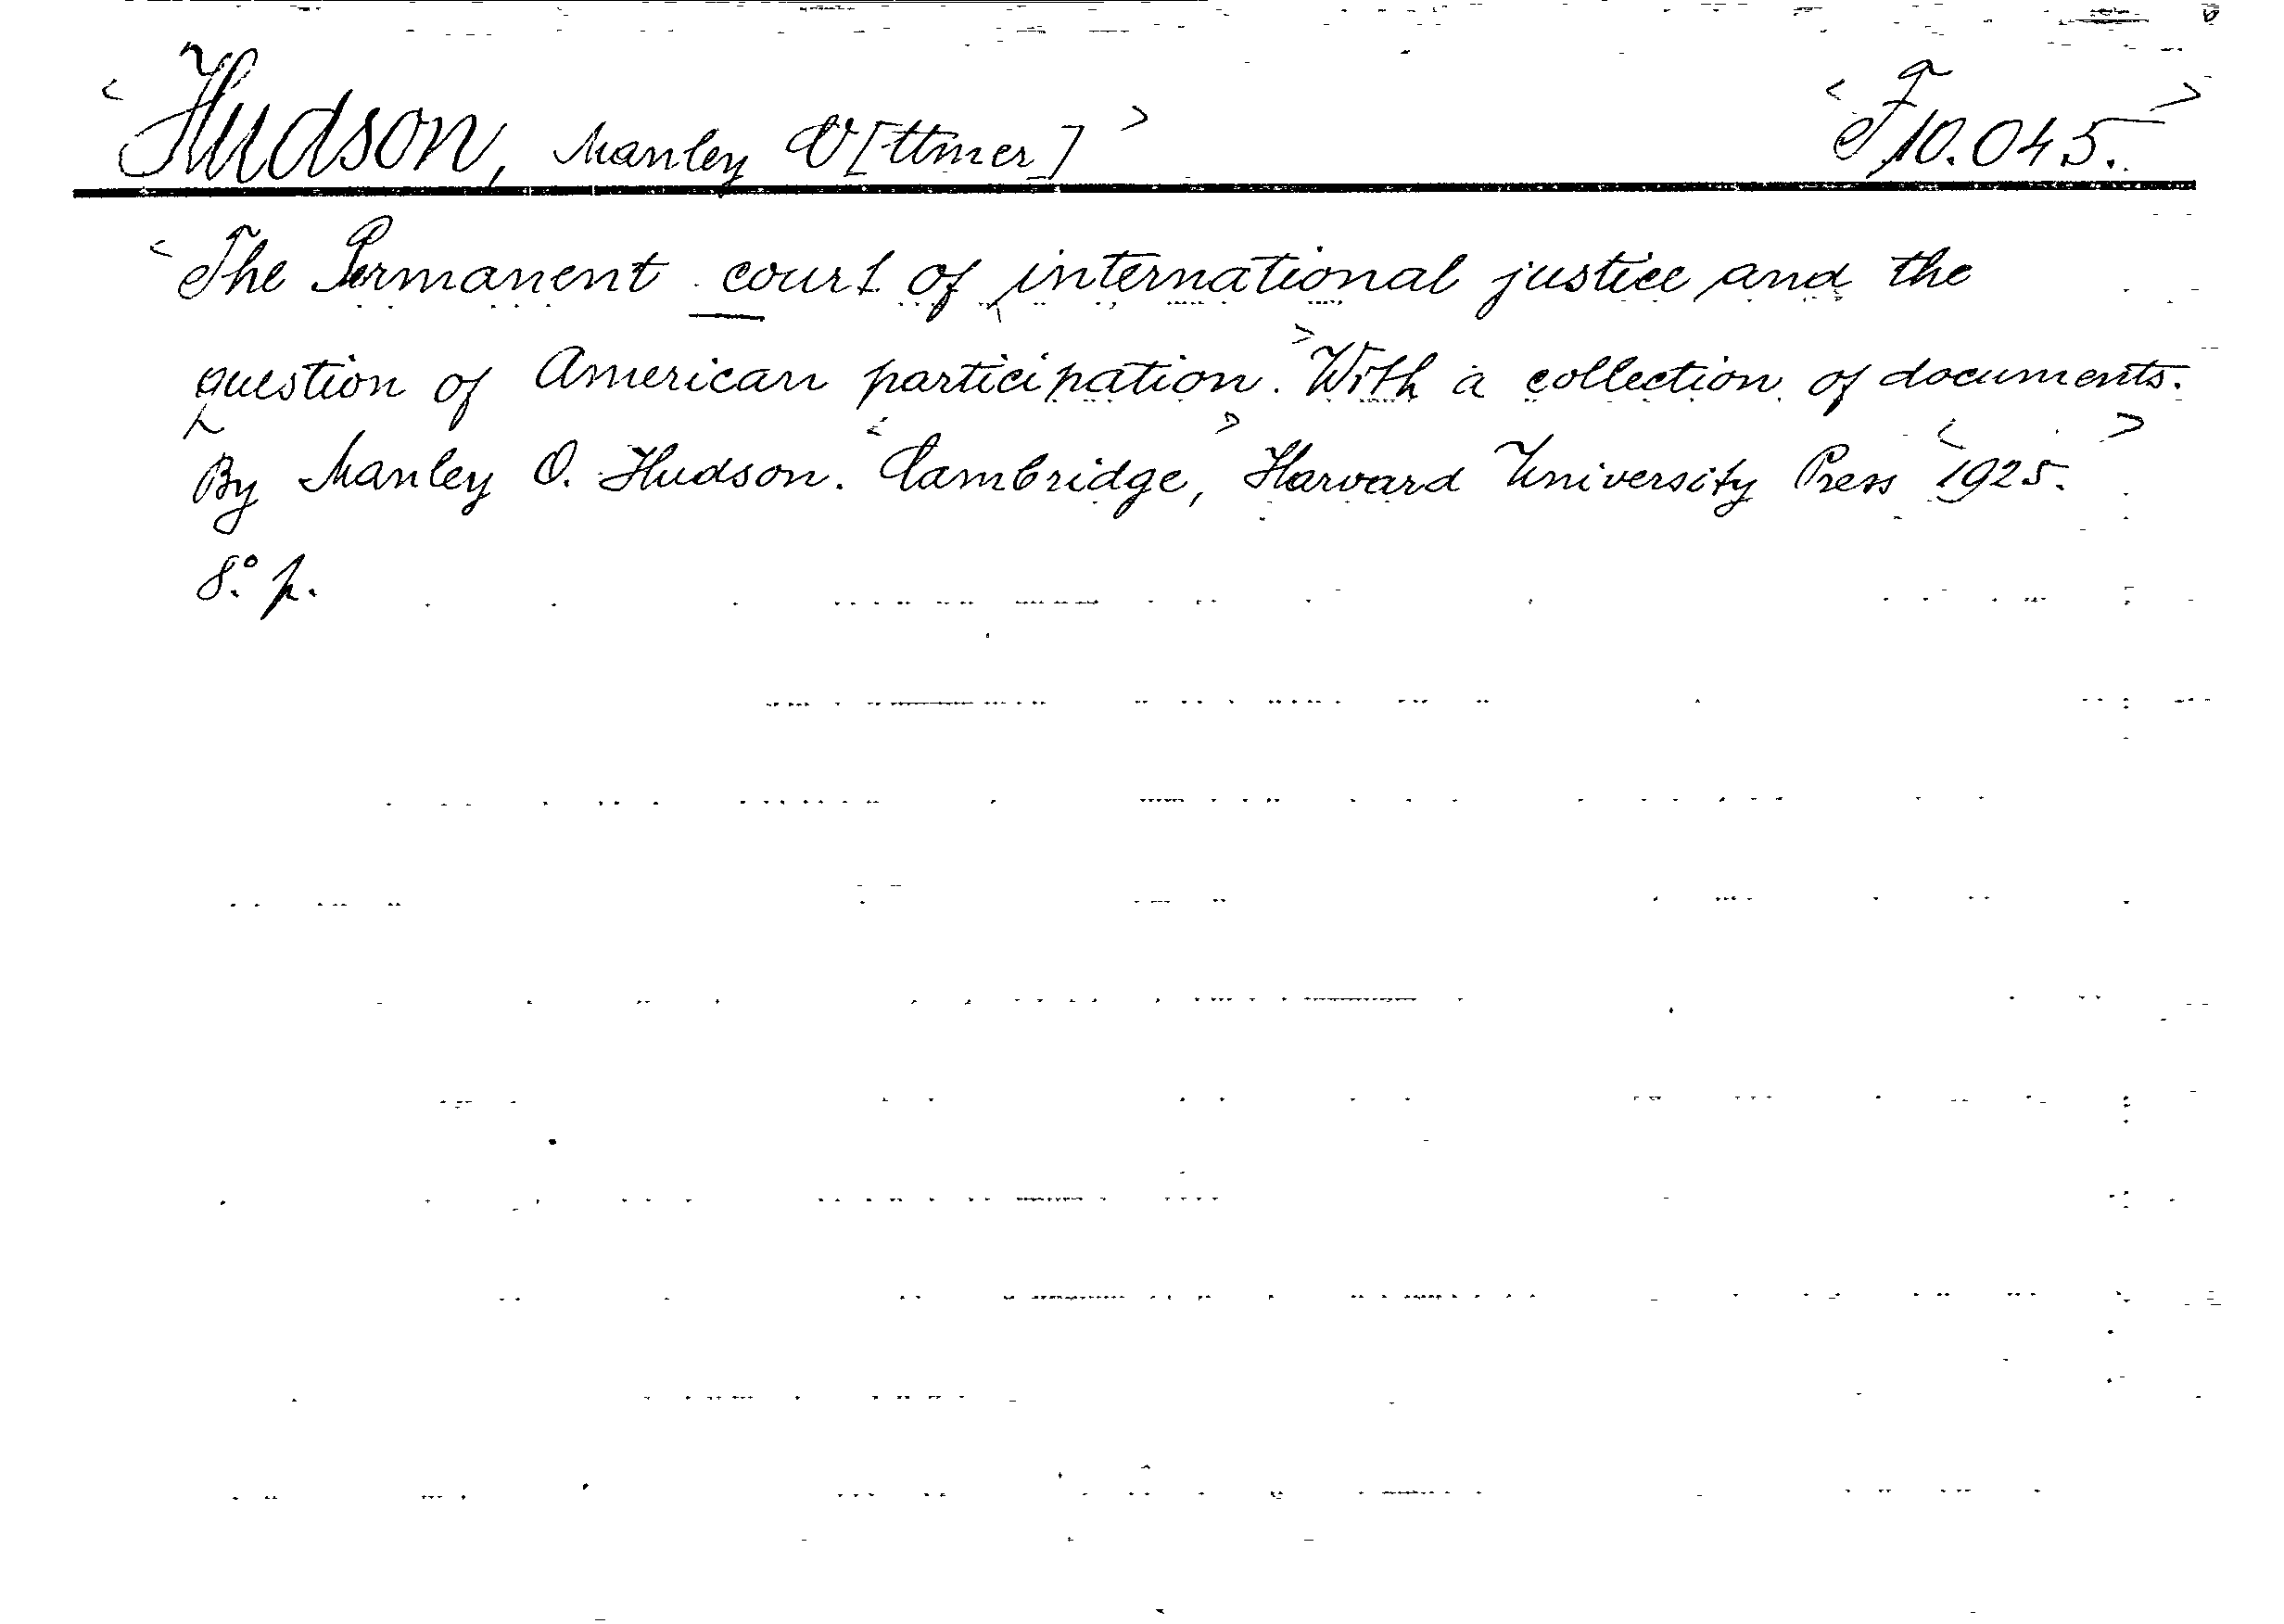 <Hudson, Manley O[ttmer]> <F 10.045.>
<The Permanent court of international justice and the
question of American participation.> With a collection of documents.
By Manley O. Hudson. <Cambridge,> Harvard University Press <1925.>
8.° p.